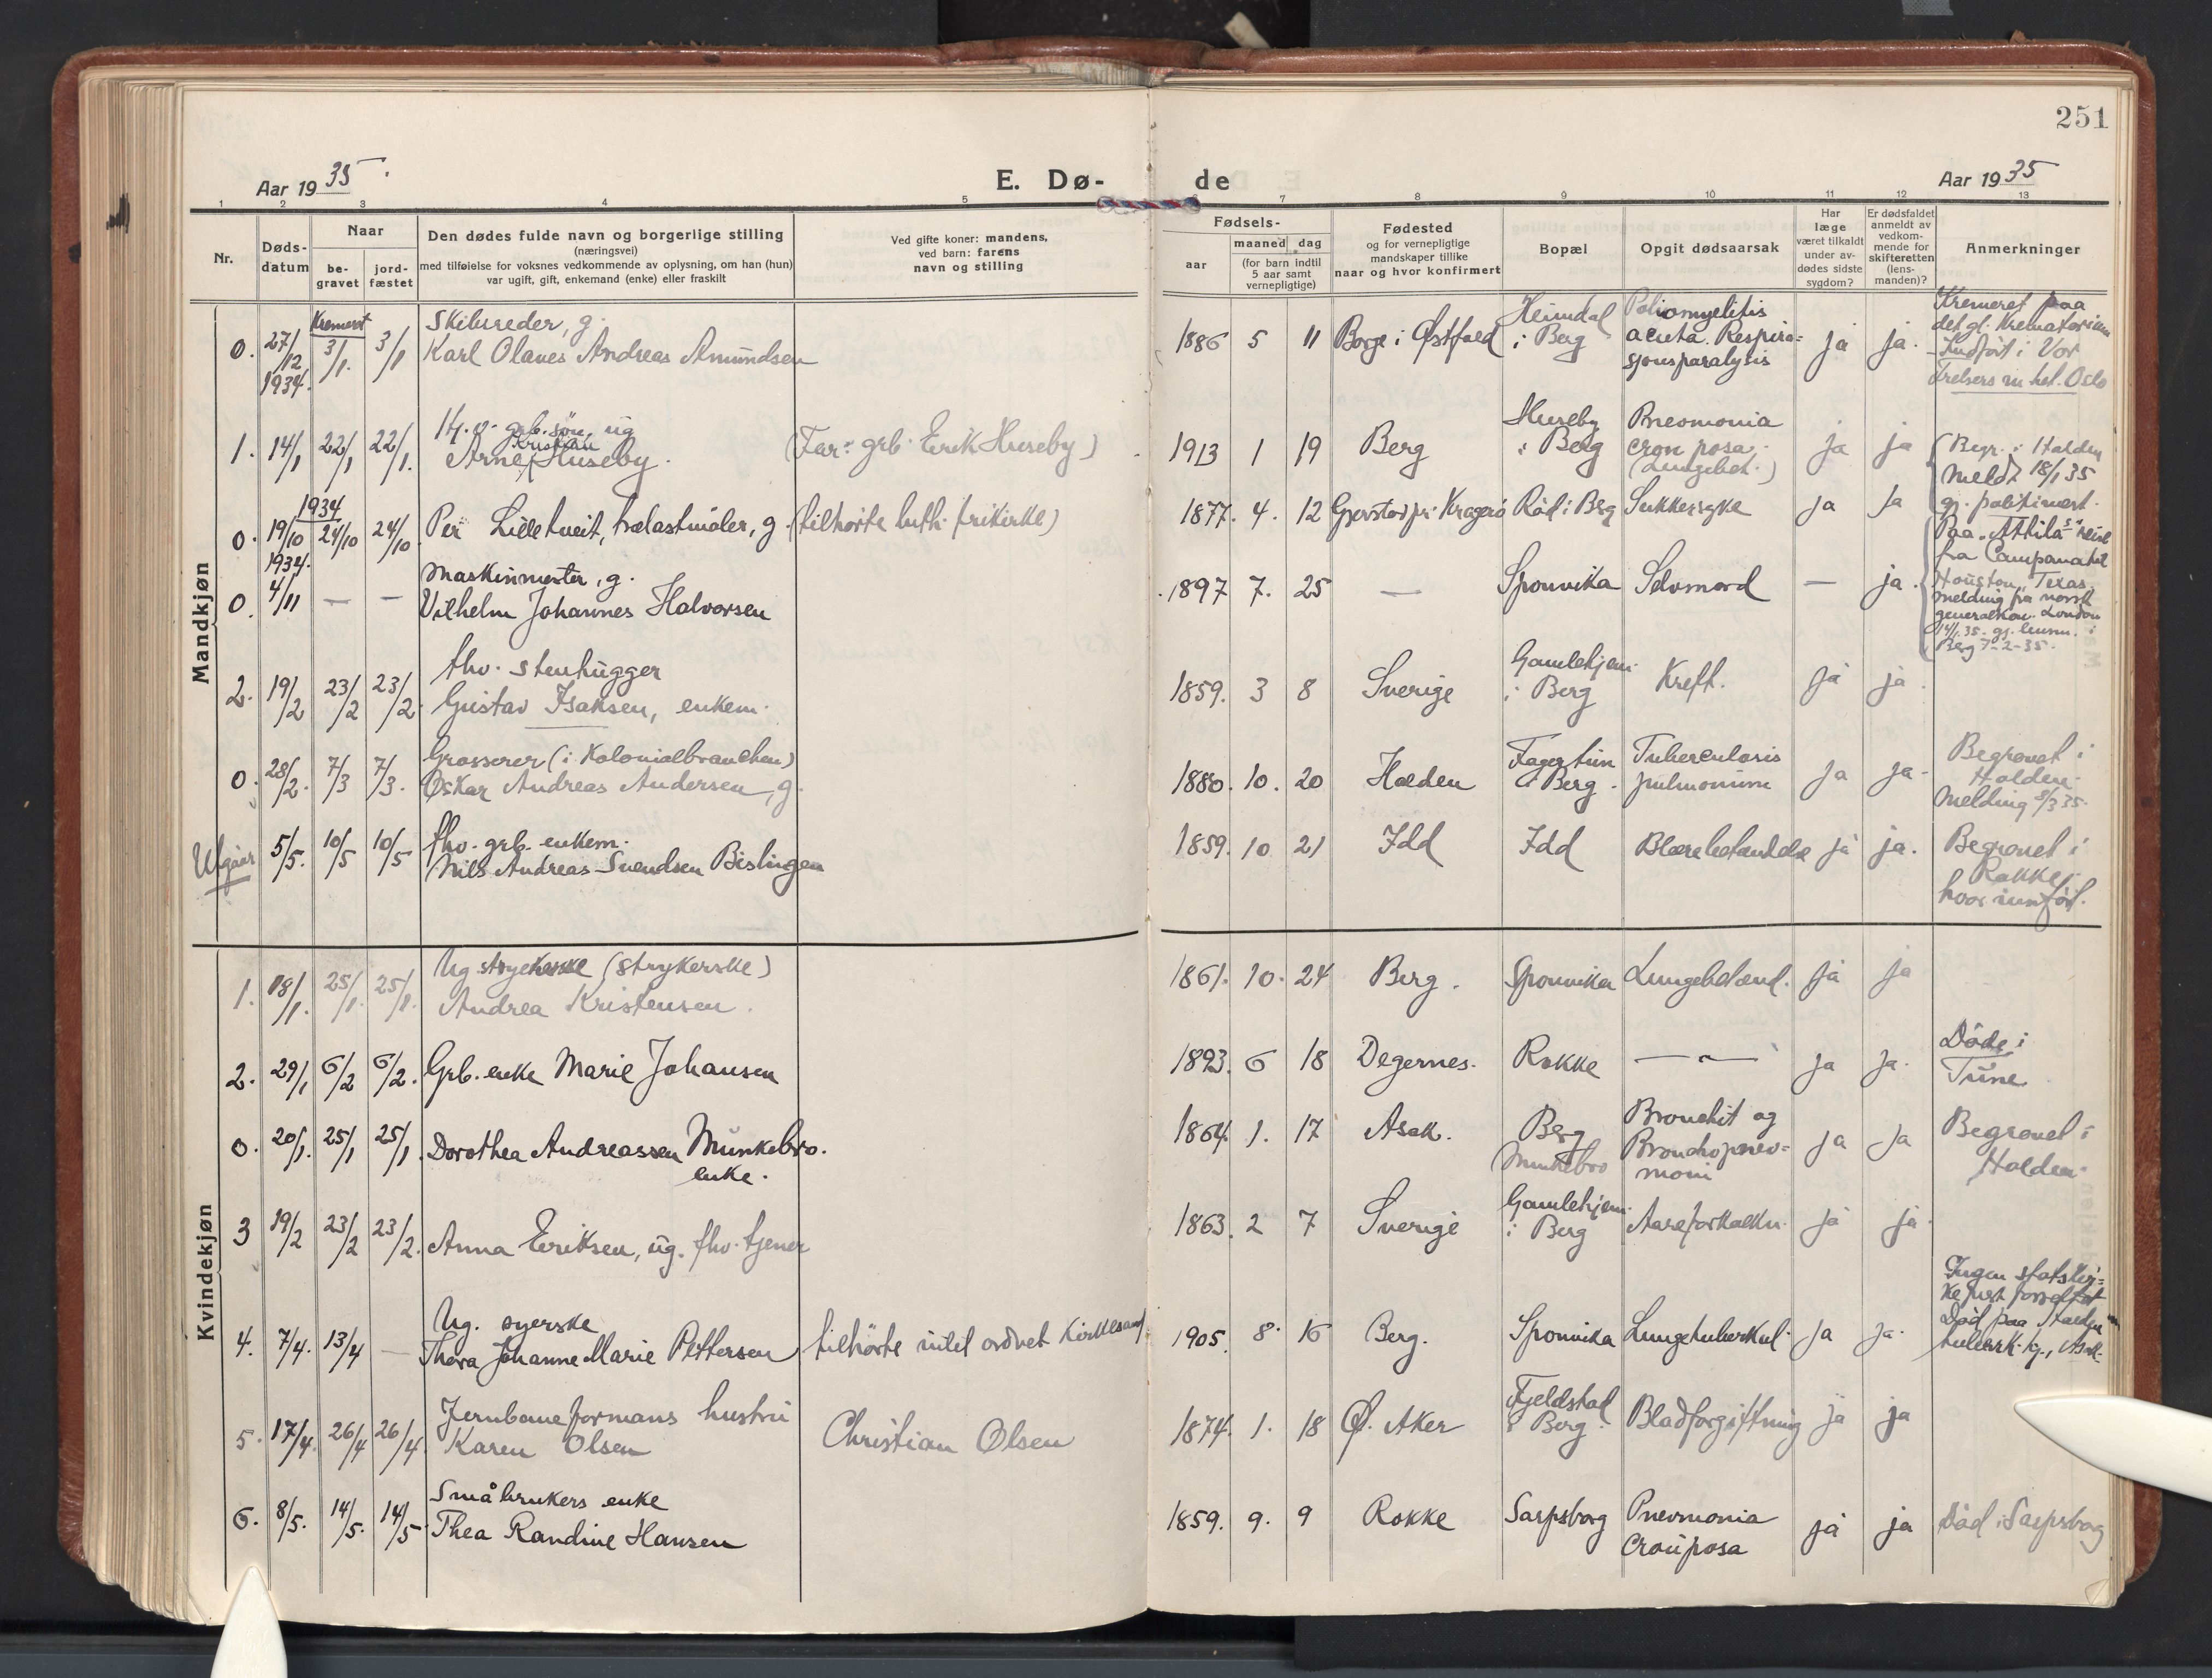 251
Aar 1935.
E. Dø-
de
Aar 1935
1 2 3 4 5 6 7 8 9 10 11 12 13
Nr.
Døds-
datum
Naar
be-
gravet
jord-
fæstet
Den dødes fulde navn og borgerlige stilling
(næringsvei)
med tilføielse for voksnes vedkommende av oplysning, om han (hun)
var ugift, gift, enkemand (enke) eller fraskilt
Ved gifte koner: mandens,
ved barn: farens
navn og stilling
Fødsels-
aar
maaned dag
(for barn indtil
5 aar samt
vernepligtige)
Fødested
og for vernepligtige
mandskaper tillike
naar og hvor konfirmert
Bopæl
Opgit dødsaarsak
Har
læge
været tilkaldt
under av-
dødes sidste
sygdom?
Er dødsfaldet
anmeldt av
vedkom-
mende for
skifteretten
(lens-
manden)?
Anmerkninger
Mandkjøn
0. 27/12 1934. Kremeret 3/1. 3/1
Skibsreder, g.
Karl Olaves Andreas Amundsen
1886 5 11 Borge i Østfold
Heimdal
i Berg
Poliomyelitis
acuta. Respira=
sjonsparalysis
ja ja.
Kremeret paa
det gl. Krematorium
- Indført i Vor
Frelsers m het. Oslo
1. 14/1 22/1 22/1.
grb. søn, ug
Arne Kristian Huseby.
(Far: grb. Erik Huseby)
1913 1 19 Berg
Huseby
i Berg
Pneomonia
(Lungebet.)
ja ja
Begr. i Halden
Meldt 18/1 35
gj. politimest.
0. 19/10 1934 24/10 24/10
Per Lilletveit, trælastmåler, g.
(tilhørte luth. frikirke)
1877. 4. 12 Kragerø Röd i Berg Sukkersyke ja ja
0. 1934. 4/11 — —
Maskinmester, g.
Vilhelm Johannes Halvorsen
1897 7. 25 — Sponvika Selvmord — ja.
Paa "Attila"s reise
fra Campana til
Houston, Texas.
Melding fra norsk
generalkon. London
14/1.35. gj. lensm. i
Berg 7-2-35.
2. 19/2 23/2 23/2.
fhv. stenhugger
Gustav Isaksen, enkem.
1859. 3 8 Sverige
Gamlehjem.
i Berg
Kreft. ja ja.
0. 28/2. 7/3 7/3.
Grosserer (i Kolonialbranchen)
Oskar Andreas Andersen, g.
1880. 10. 20 Halden
Fagertun
i Berg.
Tuberculosis
pulmonum
ja ja.
Begravet i
Halden.
Melding 8/3 35.
Utgåer 5/5. 10/5 10/5
fhv. grb. enkem.
Nils Andreas Svendsen Bislingen
1859. 10 21 Idd Idd Blærebetændelse ja ja.
Begravet i
Rokke,
hvor innført.
Kvindekjøn
1. 18/1. 25/1. 25/1.
Ug. (strykerske)
Andrea Kristensen.
1861. 10. 24 Berg. Sponvika Lungebetænd. ja ja
2. 29/1 6/2 6/2. Grb. enke Marie Johansen
1893. 6 18 Degernes. Rokke — ja ja.
Døde i
Tune
0. 20/1. 25/1 25/1.
Dorothea Andreassen Munkebro.
enke.
1864. 1. 17 Asak.
Berg
Munkebro
Bronchit og
Bronchopnev=
moni
ja ja
Begravet i
Halden.
3 19/2 23/2 23/2. Anna Eriksen, ug. fhv. tjener
1863. 2 7 Sverige
Gamlehjem.
i Berg
Aareforkalkn. ja ja.
4. 7/4. 13/4 —
Ug. syerske
Thora Johanne Marie Pettersen
tilhörte intet ordnet kirkesamf.
1905. 8. 16 Berg. Sponvika Lungetuberkul. ja ja.
Død paa Halden
tuberk. hj., Asak.
5. 17/4. 26/4 26/4.
Jernbaneformans hustru
Karen Olsen
Christian Olsen
1874. 1. 18 Ø. Aker
Fjeldstad
i Berg.
Blodforgiftning ja ja
6. 8/5. 14/5. 14/5.
Småbrukers enke
Thea Randine Hansen
1859. 9. 9 Rokke Sarpsborg
Pnevmonia
crouposa
ja ja Död i Sarpsborg